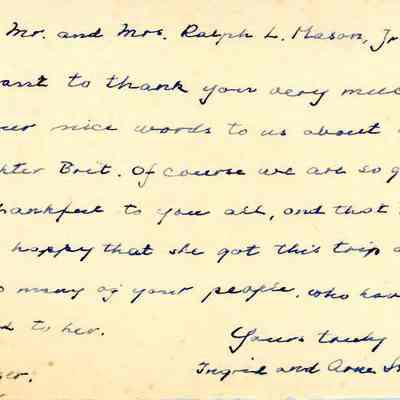 Mr. and Mrs. Ralph L. Mason, Jr
to thank you very much
nice words to us about
Brit. Of course we are so
thankful to you all, and that
happy that she got this trip
many of your people, who have
to her.
Yours truly
Ingrid and Arne